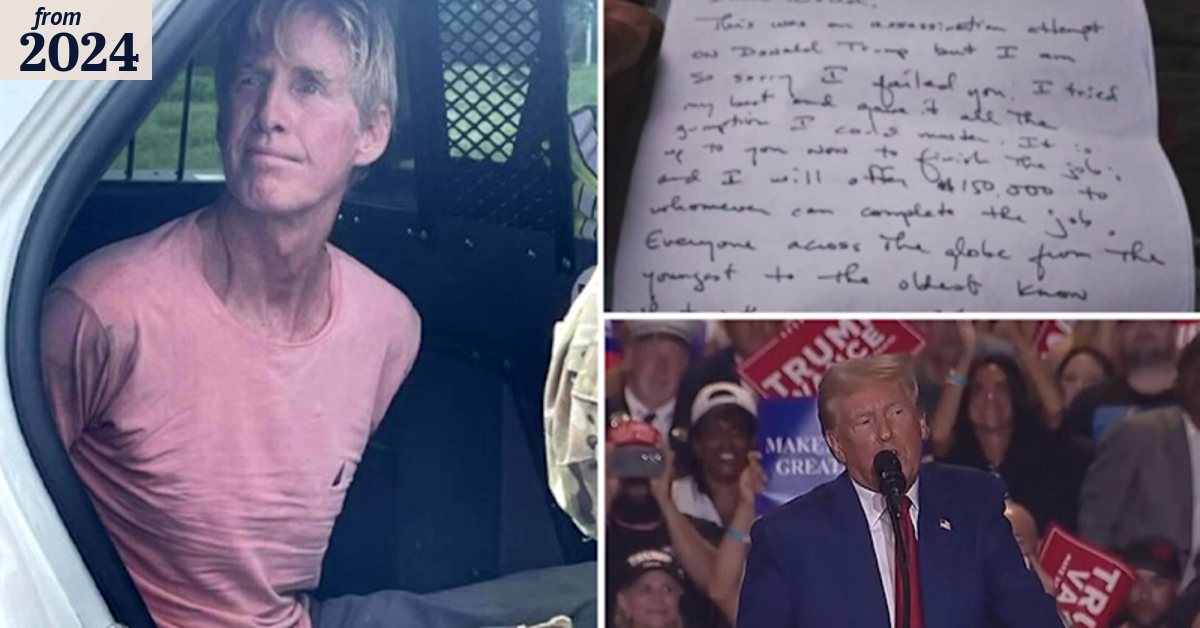 from
2024
This was an assassination attempt
on Donald Trump but I am
so sorry I failed you. I tried
my best and gave it all the
gumption I could muster. It is
up to you now to finish the job;
and I will offer $150,000 to
whomever can complete the job.
Everyone across the globe from the
youngest to the oldest know
TRUMP
MAKE
GREAT
TRUMP
TRUMP
VA